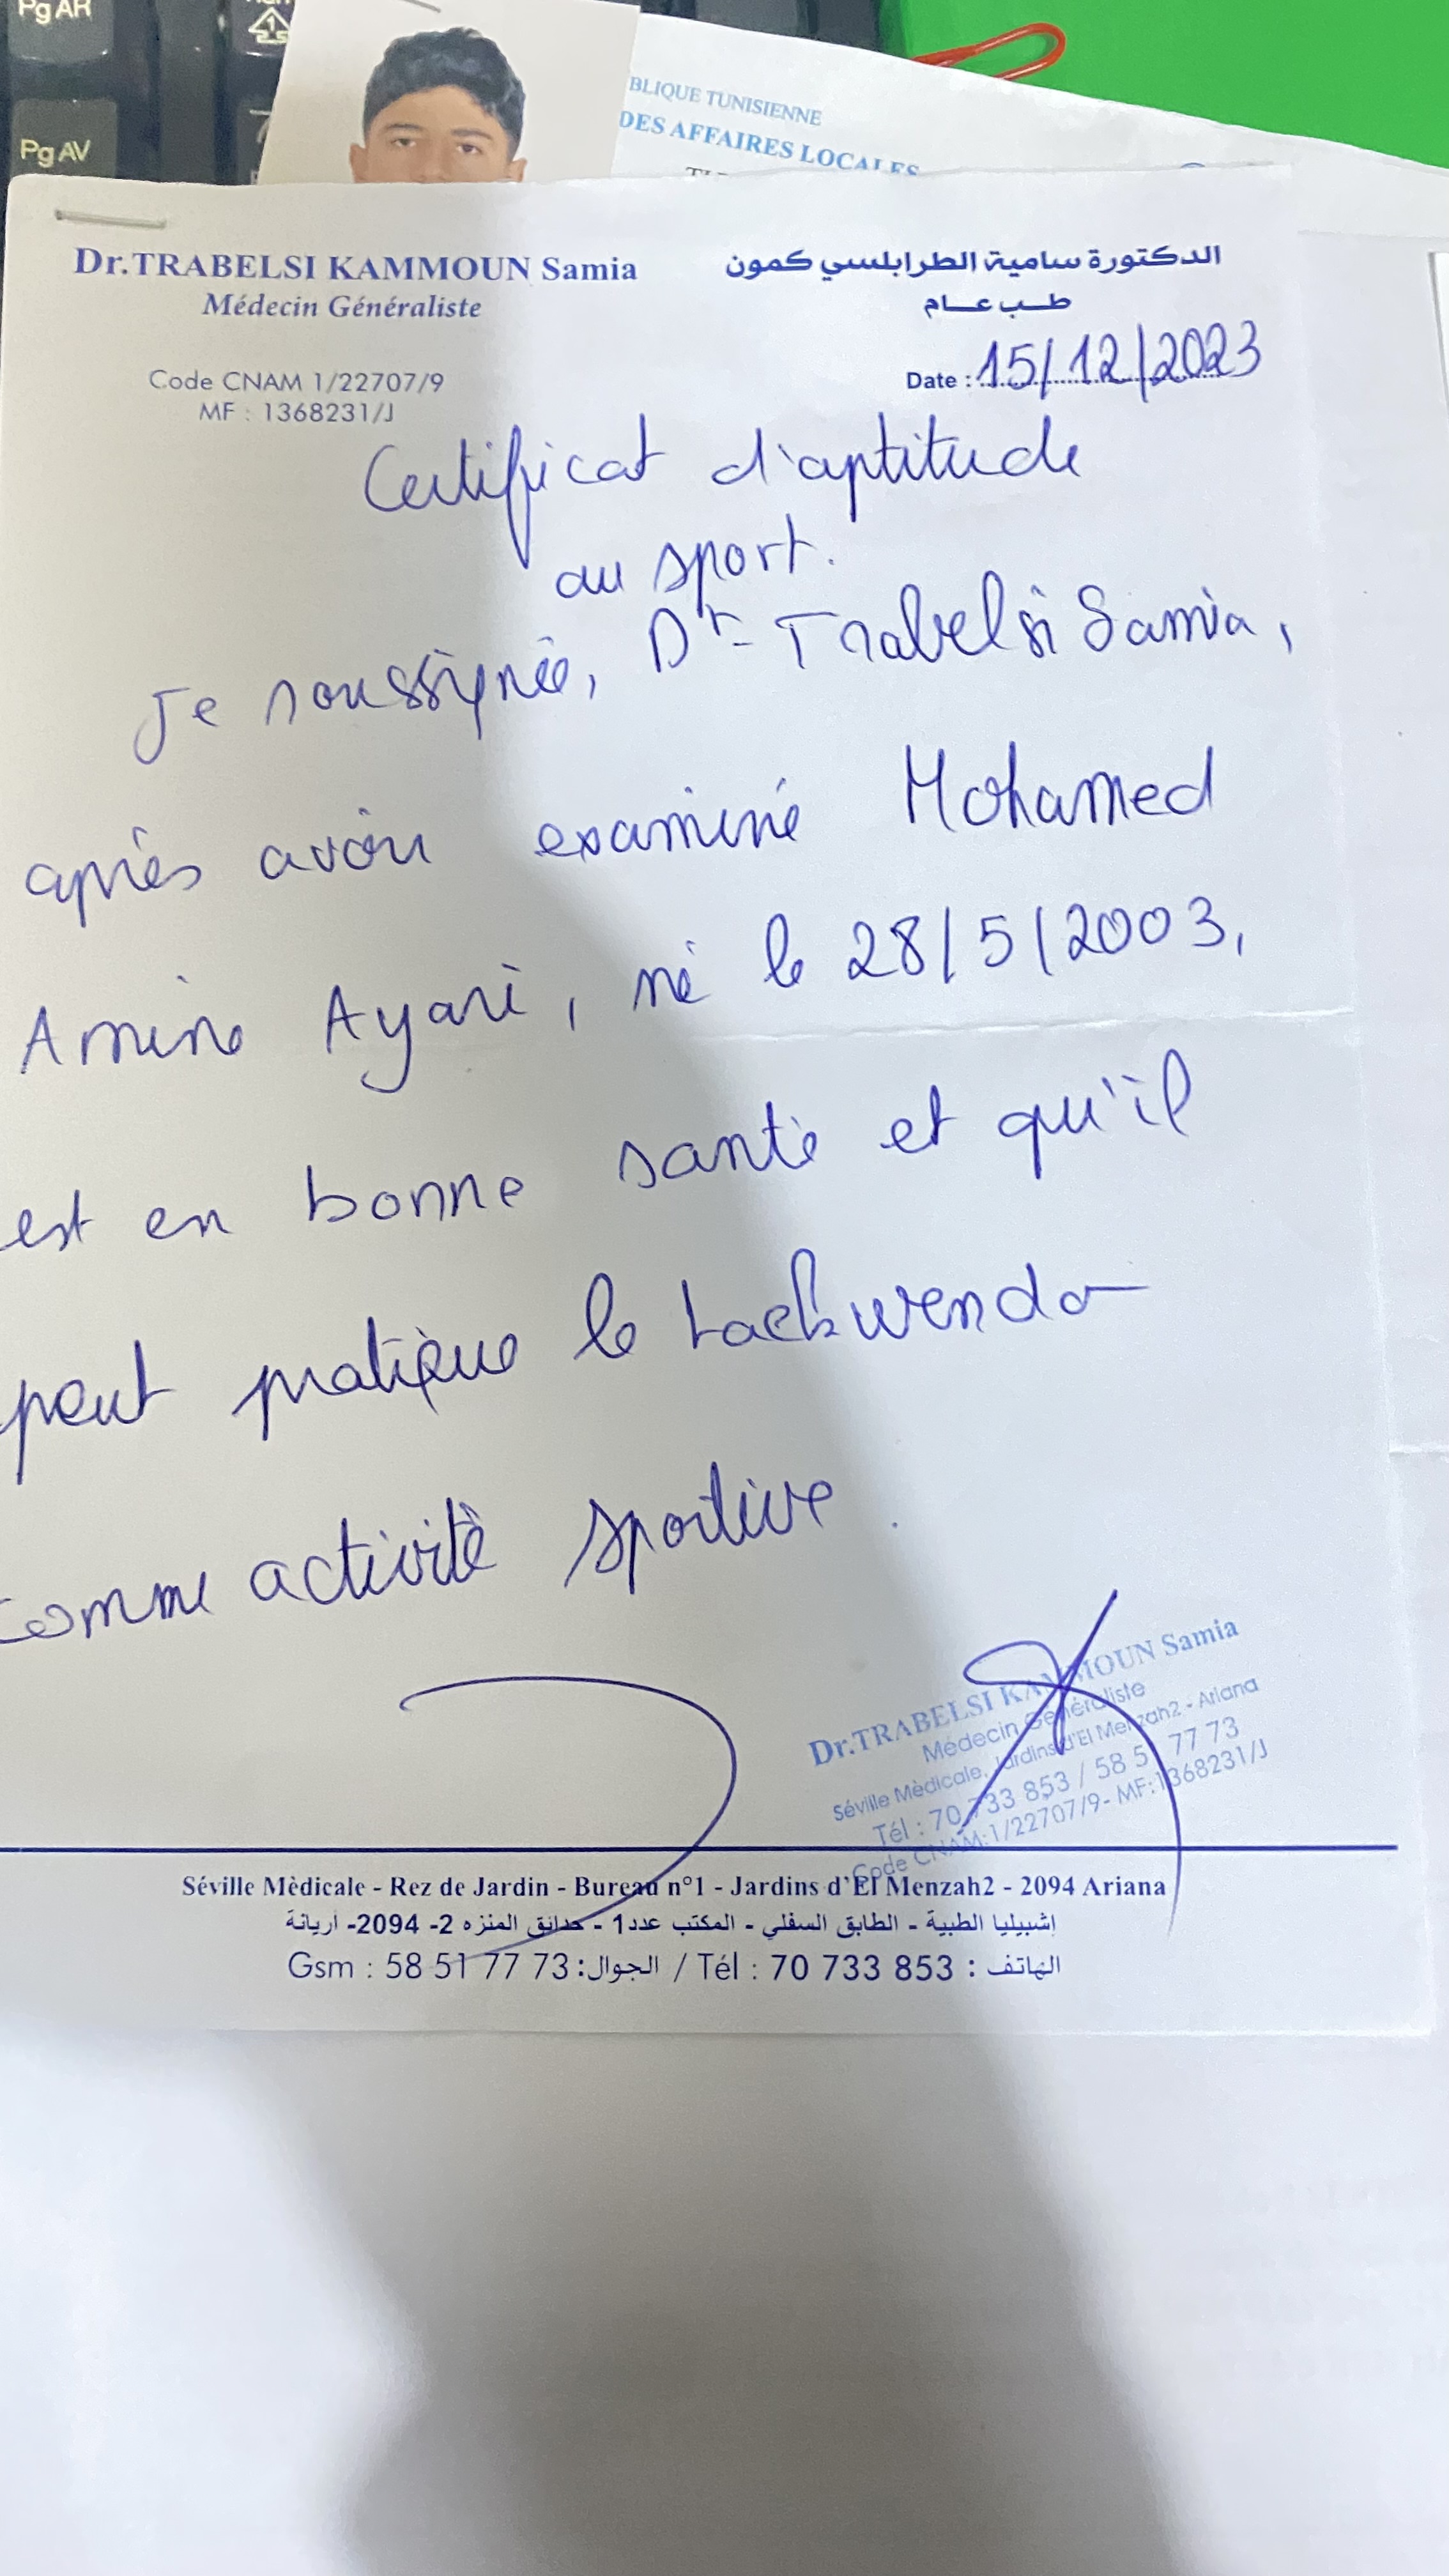 Pg AR
Pg AV
BLIQUE TUNISIENNE
DES AFFAIRES LOCALES
Dr.TRABELSI KAMMOUN Samia
Médecin Généraliste
Code CNAM 1/22707/9
MF : 1368231/J
الدكتورة سامية الطرابلسي كمون
طب عام
Date : 15/12/2023
Certificat d'aptitude
au sport.
Je soussignée, Dr Trabelsi Samia,
après avoir examiné Mohamed
Amine Ayari, né le 28/5/2003,
est en bonne santé et qu'il
peut pratique le taekwendo
comme activité sportive.
Dr.TRABELSI KAMMOUN Samia
Médecin Généraliste
Séville Mèdicale, Jardins d'El Menzah2 - Ariana
Tél : 70 733 853 / 58 51 77 73
Code CNAM:1/22707/9- MF:1368231/J
Séville Mèdicale - Rez de Jardin - Bureau n°1 - Jardins d'El Menzah2 - 2094 Ariana
إشبيليا الطبية - الطابق السفلي - المكتب عدد1 - حدائق المنزه 2- 2094- أريانة
Gsm : 58 51 77 73 :الجوال / Tél : 70 733 853 : الهاتف